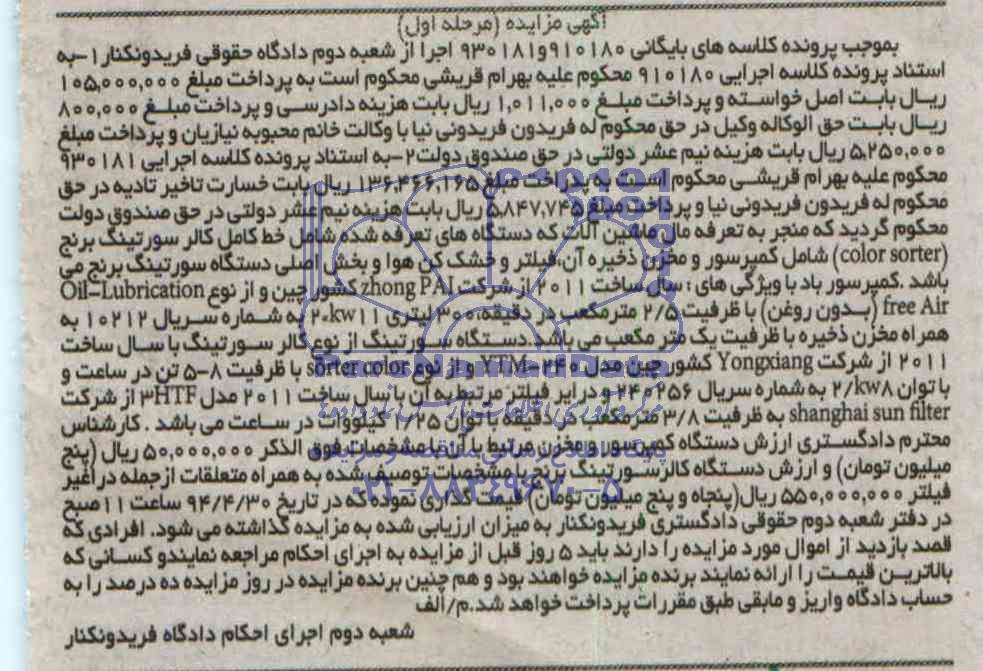 آگهی مزایده (مرحله اول)
بموجب پرونده کلاسه های بایگانی ۹۱۰۱۸۰و۹۳۰۱۸۱ اجرا از شعبه دوم دادگاه حقوقی فریدونکنار۱-به
استناد پرونده کلاسه اجرایی ۹۱۰۱۸۰ محکوم علیه بهرام قریشی محکوم است به پرداخت مبلغ ۱۰۵,۰۰۰,۰۰۰
ریال بابت اصل خواسته و پرداخت مبلغ ۱,۰۱۱,۰۰۰ ریال بابت هزینه دادرسی و پرداخت مبلغ ۸۰۰,۰۰۰
ریال بابت حق الوکاله وکیل در حق محکوم له فریدون فریدونی نیا با وکالت خانم محبوبه نیازیان و پرداخت مبلغ
۵,۲۵۰,۰۰۰ ریال بابت هزینه نیم عشر دولتی در حق صندوق دولت۲-به استناد پرونده کلاسه اجرایی ۹۳۰۱۸۱
محکوم علیه بهرام قریشی محکوم است به پدراخت مبلغ ۱۳۶,۴۶۶,۱۶۵ ریال بابت خسارت تاخیر تادیه در حق
محکوم له فریدون فریدونی نیا و پرداخت مبلغ ۵,۸۴۷,۷۴۵ ریال بابت هزینه نیم عشر دولتی در حق صندوق دولت
محکوم گردید که منجر به تعرفه مال ماشین آلات که دستگاه های تعرفه شده شامل خط کامل کالر سورتینگ برنج
(color sorter) شامل کمپرسور و مخزن ذخیره آن،فیلتر و خشک کن هوا و بخش اصلی دستگاه سورتینگ برنج می
باشد .کمپرسور باد با ویژگی های : سال ساخت ۲۰۱۱ از شرکت zhong PAI کشور چین و از نوع Oil-Lubrication
free Air (بدون روغن) با ظرفیت ۲/۵ مترمکعب در دقیقه،۳۰۰ لیتری ۲۰kw۱۱ به شماره سریال ۱۰۲۱۲ به
همراه مخزن ذخیره با ظرفیت یک متر مکعب می باشد.دستگاه سورتینگ از نوع کالر سورتینگ با سال ساخت
۲۰۱۱ از شرکت Yongxiang کشور چین مدل YTM-۲۴۰ و از نوع sorter color با ظرفیت ۸-۵ تن در ساعت و
با توان ۲/kw۸ به شماره سریال ۲۴۰۲۵۶ و درایر فیلتر مرتبط به آن با سال ساخت ۲۰۱۱ مدل ۳HTF از شرکت
shanghai sun filter به ظرفیت ۳/۸ مترمکعب در دقیقه با توان ۱/۲۵ کیلووات در ساعت می باشد . کارشناس
محترم دادگستری ارزش دستگاه کمپرسور و مخزن مرتبط با آن با مشخصات فوق الذکر ۵۰,۰۰۰,۰۰۰ ریال (پنج
میلیون تومان) و ارزش دستگاه کالر سورتینگ برنج با مشخصات توصیف شده به همراه متعلقات ازجمله درایر
فیلتر ۵۵۰,۰۰۰,۰۰۰ ریال(پنجاه و پنج میلیون تومان) قیمت گذاری نموده که در تاریخ ۹۴/۴/۳۰ ساعت ۱۱ صبح
در دفتر شعبه دوم حقوقی دادگستری فریدونکنار به میزان ارزیابی شده به مزایده گذاشته می شود. افرادی که
قصد بازدید از اموال مورد مزایده را دارند باید ۵ روز قبل از مزایده به اجرای احکام مراجعه نمایندو کسانی که
بالاترین قیمت را ارائه نمایند برنده مزایده خواهند بود و هم چنین برنده مزایده در روز مزایده ده درصد را به
حساب دادگاه واریز و مابقی طبق مقررات پرداخت خواهد شد.م/الف
شعبه دوم اجرای احکام دادگاه فریدونکنار